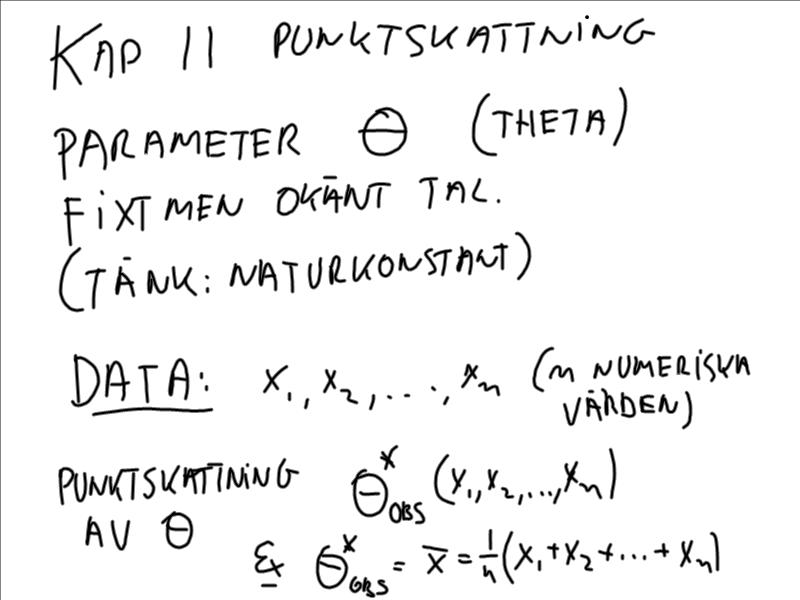 KAP 11 PUNKTSKATTNING
PARAMETER Θ (THETA)
FIXT MEN OKÄNT TAL.
(TÄNK: NATURKONSTANT)
DATA: x₁, x₂, ..., xₙ (n NUMERISKA
VÄRDEN)
PUNKTSKATTNING Θ*OBS (x₁, x₂, ..., xₙ)
AV Θ
Ex Θ*OBS = x̄ = 1/n (x₁ + x₂ + ... + xₙ)